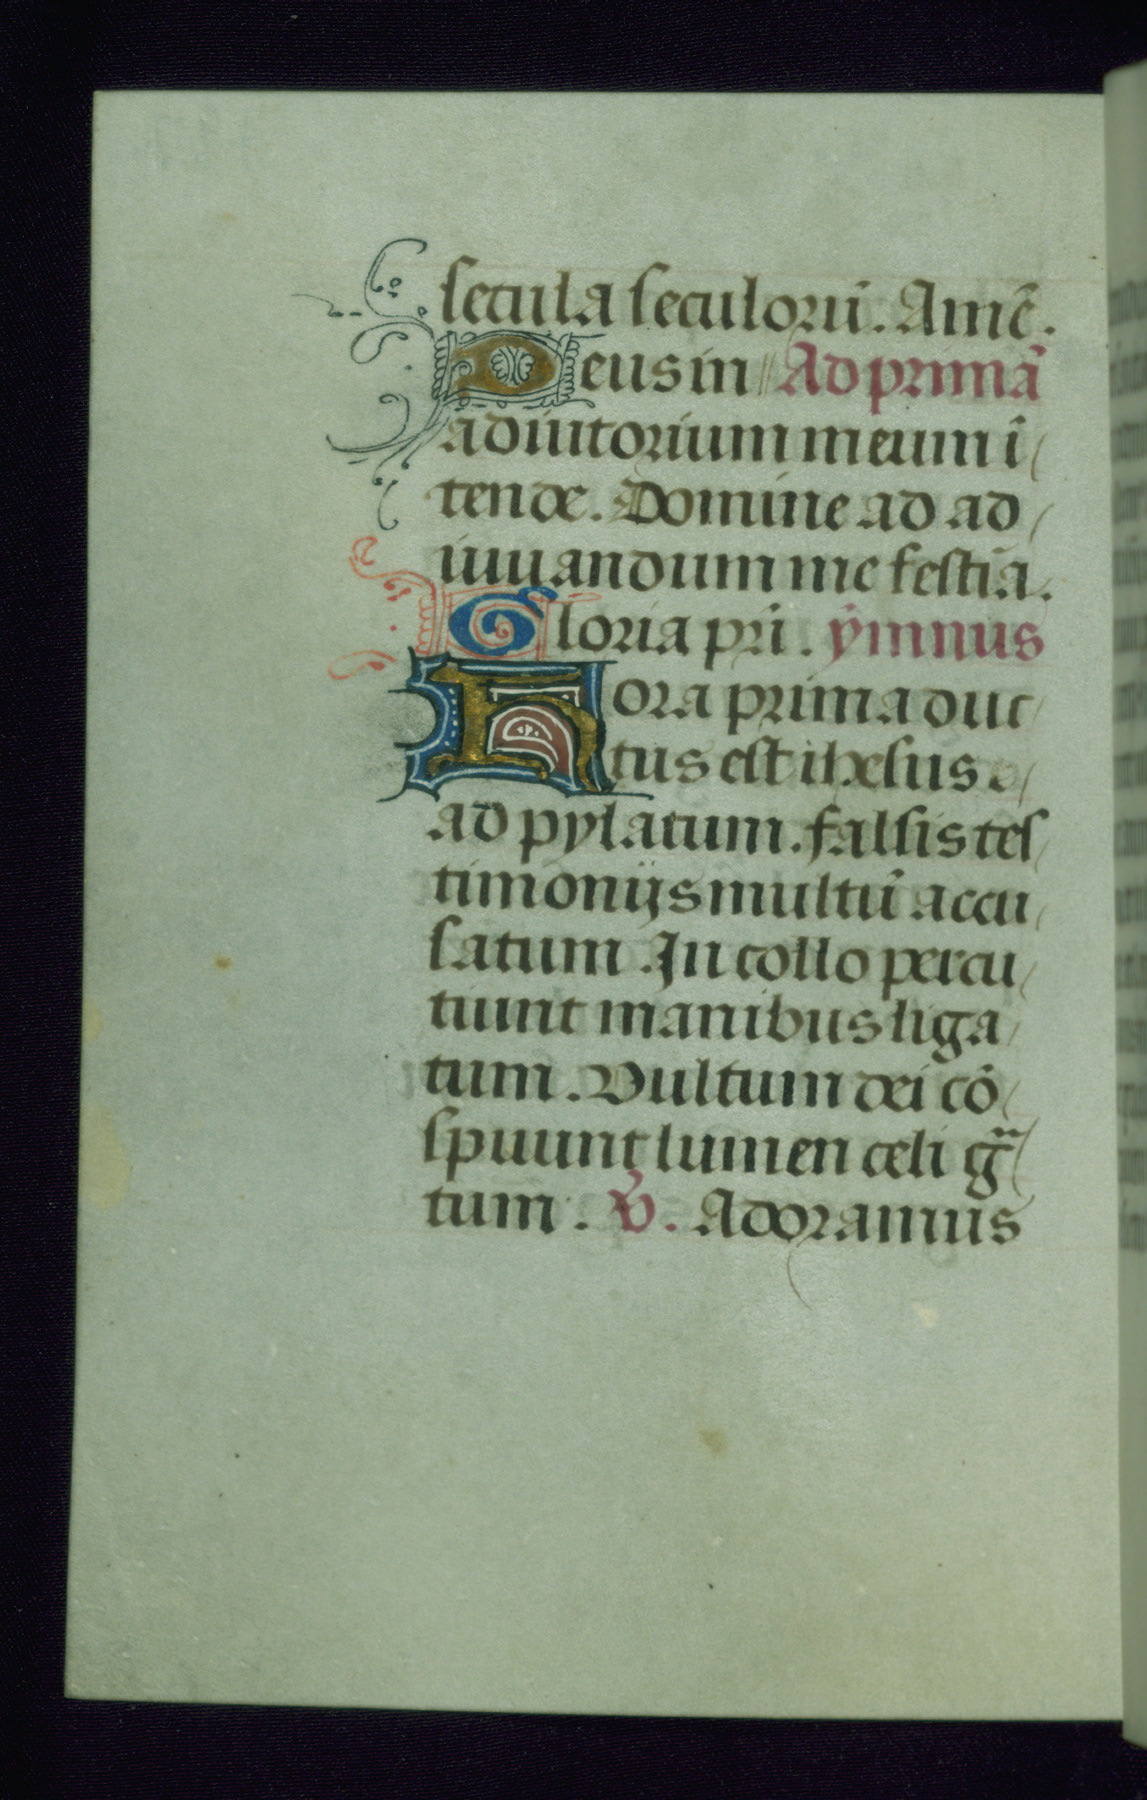 secula seculorū. Amē.
Deus in Ad primā
adiutorium meum ī
tende. Domine ad ad
iuuandum me festīa.
Gloria pr̄i. ymnus
Hora prima duc
tus est ihesus
ad pylatum. falsis tes
timonijs multū accu
satum. In collo percu
tiunt manibus liga
tum. Vultum dei cō
spuunt lumen celi gͣ
tum. V̄. Adoramus